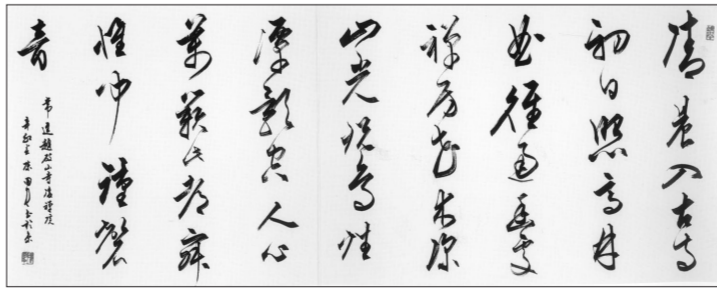 清晨入古寺
初日照高林
曲徑通幽處
禅房花木深
山光悦鳥性
潭影空人心
萬籟此都寂
惟聞鐘磬
音
常建題破山寺後禅院